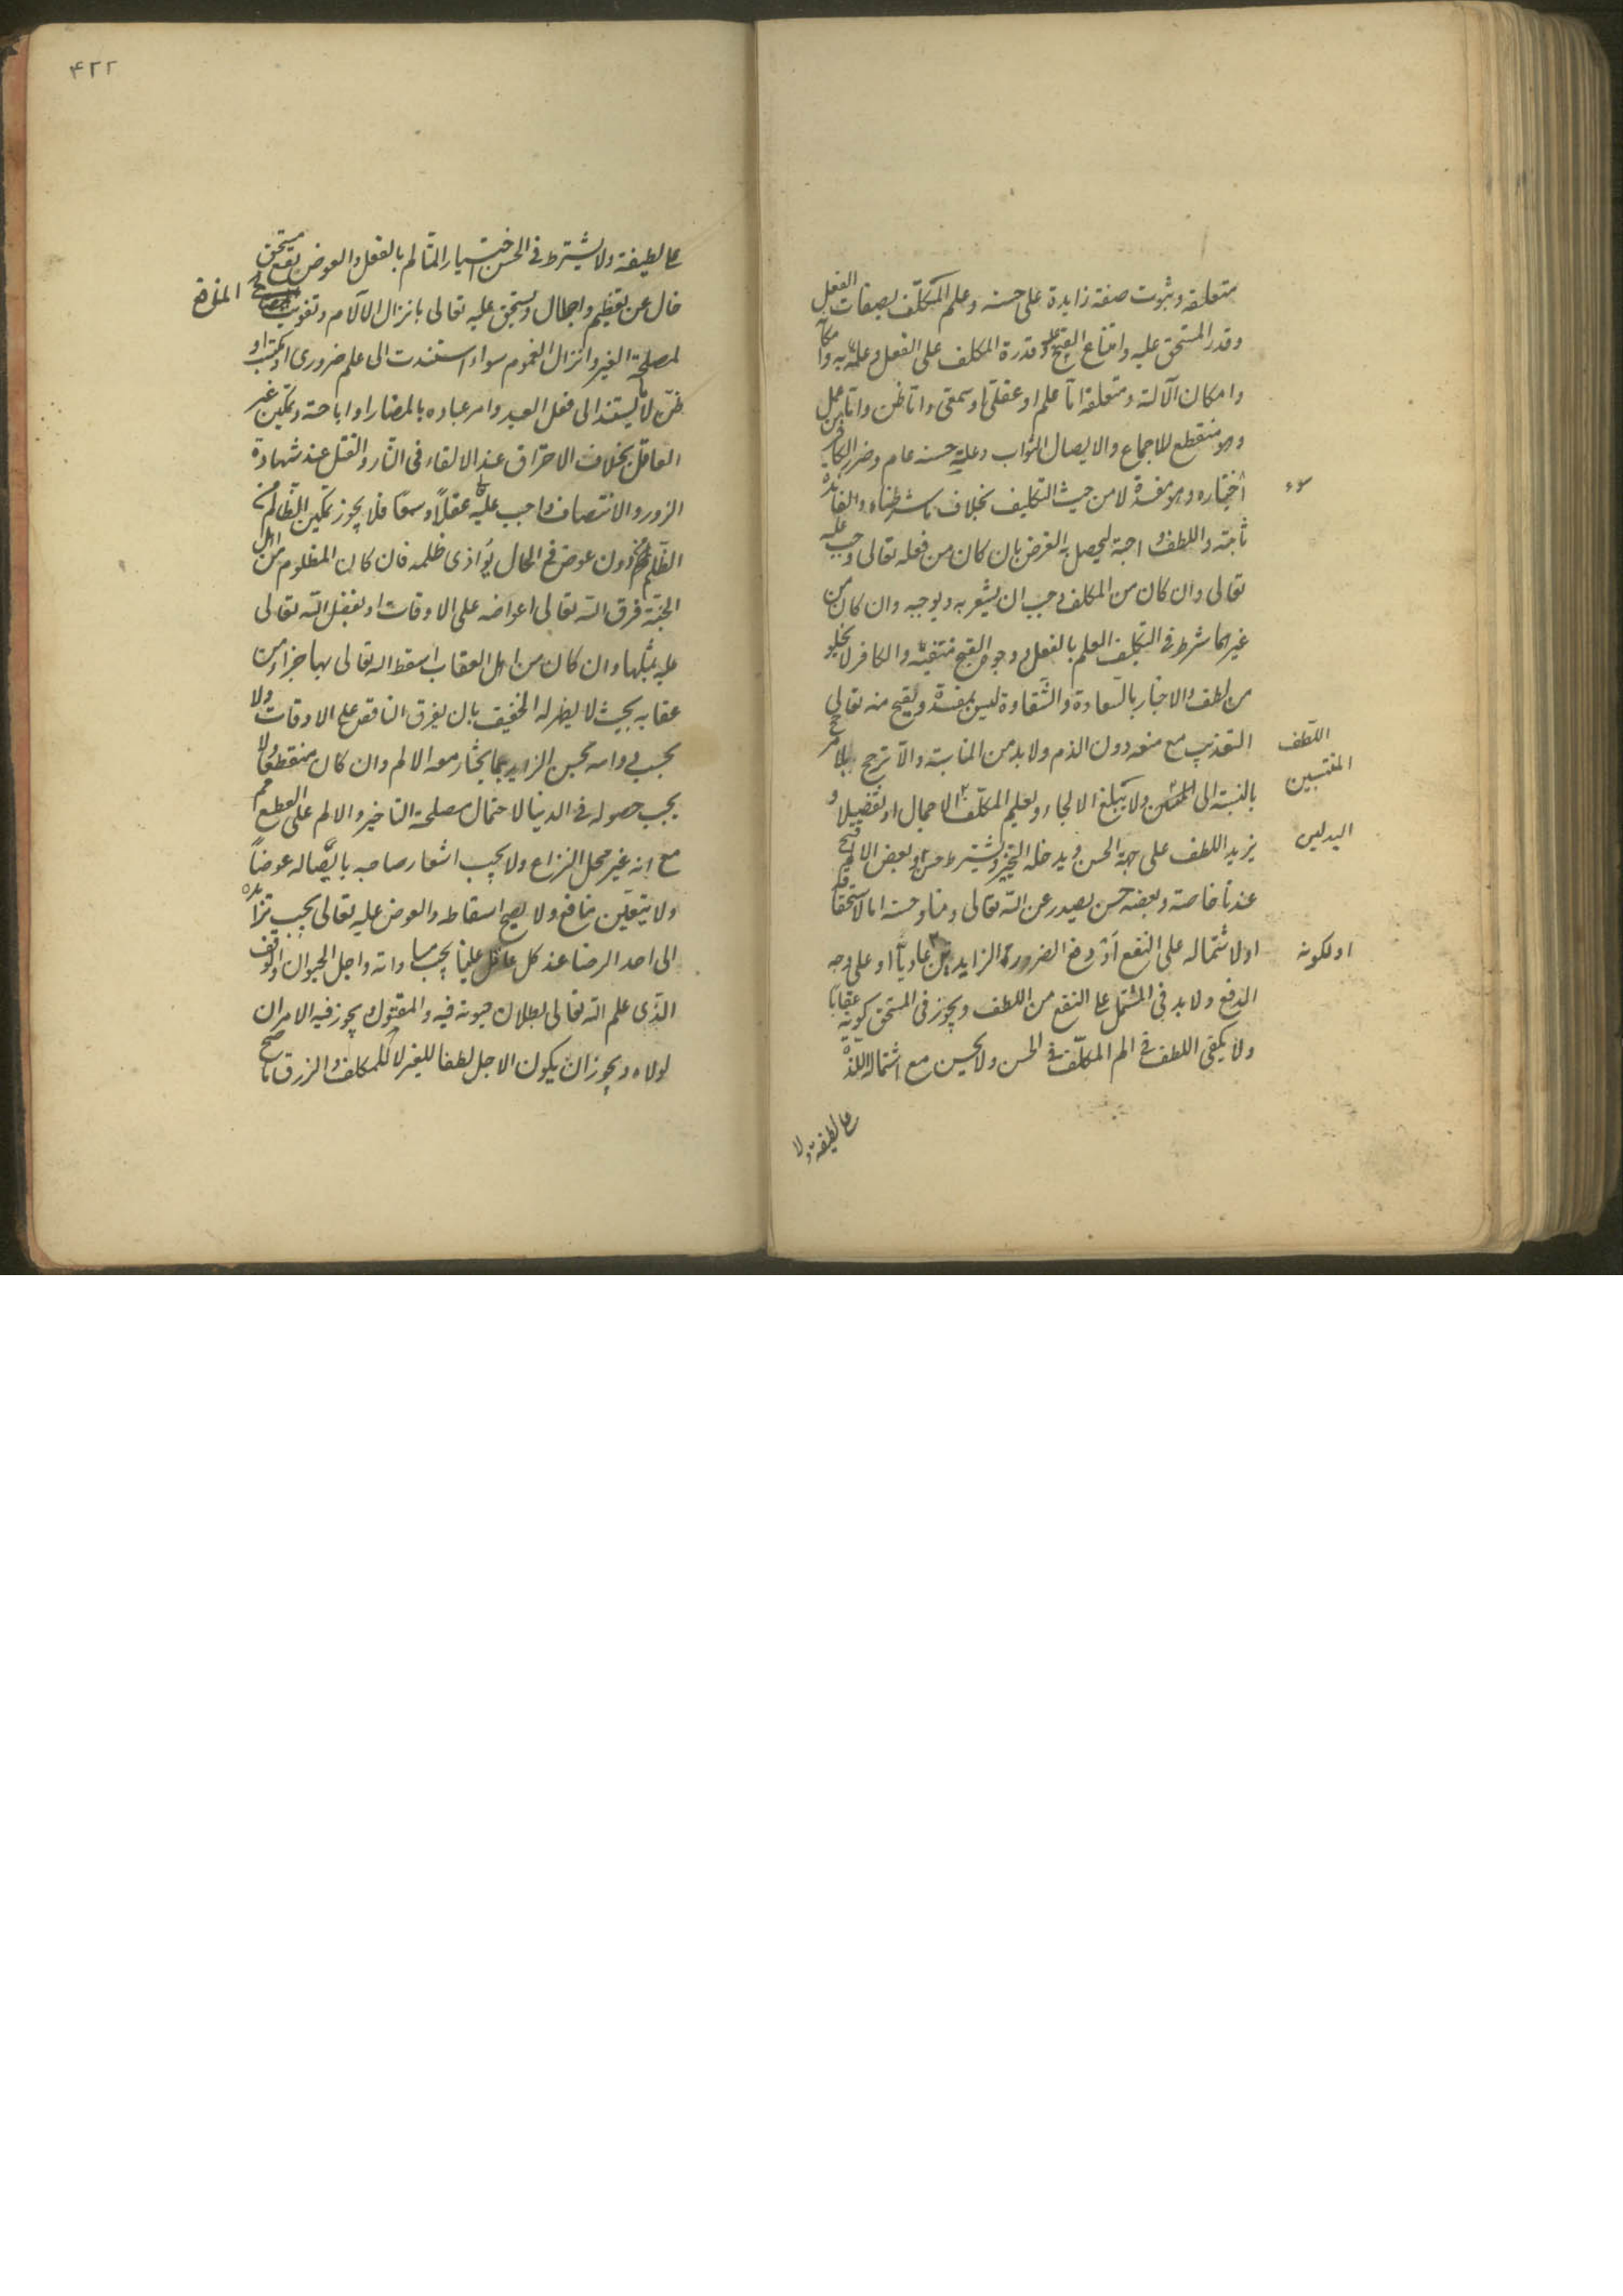 متعلقه وثبوت صفة زايدة على حسنه وعلم المكلّف بصفات الفعل
وقدر المستحق عليه وامتناع القبيح عليه وقدرة المكلف على الفعل وعلمه به وامكانه
وامكان الآلة ومتعلقه اما علم اما عقلى او سمعى واما ظن واما عمل
وهو منقطع للاجماع والايصال الثواب وعلة حسنه عام وضرر الكافر من
اختياره وهو مفسدة لا من حيث التكليف بخلاف ما شرطناه والفائدة
ثابتة واللطف واجب ليحصل الغرض به فان كان من فعله تعالى وجب عليه
تعالى وان كان من المكلف وجب ان يشعر به ويوجبه وان كان من
غيرهما شرط فى التكليف العلم بالفعل ووجوه القبح منتفية والكافر لا يخلو
من لطف والاخبار بالسعادة والشقاوة ليس بمفسدة ويقبح منه تعالى
التعذيب مع منعه دون الذم ولا بد من المناسبة والا ترجح بلا مرجح
اللطف
بالنسبة الى المنتسبين ولا يبلغ الالجاء ويعلم المكلّف الاجمال او تفصيلا و
المنتسبين
يزيد اللطف على جهة الحسن ويدخله التخيير ويشترط حسن وبعض الالم قبيح
البدلين
عندنا خاصة وبعضه حسن يصدر عن الله تعالى ومنا وحسنه اما لاستحقاقه
او لاشتماله على النفع او دفع الضرر الزايدين عاديا او على وجه
او لكونه
الدفع ولا بد فى المشتمل على النفع من اللطف ويجوز فى المستحق كونه عقابا
ولا يكفى اللطف فى الم المكلّف فى الحسن ولا يحسن مع اشتمال اللذة
على لطيفة ولا
٤٢٢
على لطيفة ولا يشترط فى الحسن اختيار المتألم بالفعل والعوض نفع مستحق
خال عن تعظيم واجلال ويستحق عليه تعالى بانزال الآلام وتفويت المنافع
لمصلحة الغير وانزال الغموم سواء استندت الى علم ضرورى او مكتسب او
ظن لا ما يستند الى فعل العبد وامر عباده بالمضار او اباحته وتمكين غير
العاقل بخلاف الاحراق عند الالقاء فى النار والقتل عند شهادة
الزور والانتصاف واجب عليه عقلاً وسمعا فلا يجوز تمكين الظالم من
الظلم دون عوض فى الحال يوازى ظلمه فان كان المظلوم من اهل
الجنّة فرق الله تعالى اعواضه على الاوقات او تفضل الله تعالى
عليه بمثلها وان كان من اهل العقاب اسقط الله تعالى بها جزاء من
عقابه بحيث لا يظهر له التخفيف بان يفرق الناقص على الاوقات ولا
يجب دوامه لحسن الزايد بما يختار معه الالم وان كان منقطعا ولا
يجب حصوله فى الدنيا لاحتمال مصلحة التاخير والالم على القطع مم
مع انه غير محل النزاع ولا يجب اشعار صاحبه بايصاله عوضاً
ولا يتعين منافع ولا يصح اسقاطه والعوض عليه تعالى يجب تزايده
الى احد الرضا عند كل عاقل وعلينا يجب مساواته واجل الحيوان الوقت
الذى علم الله تعالى بطلان حيوته فيه والمقتول يجوز فيه الامران
لولاه ويجوز ان يكون الاجل لطفا للغير لا للمكلف والرزق ما صح